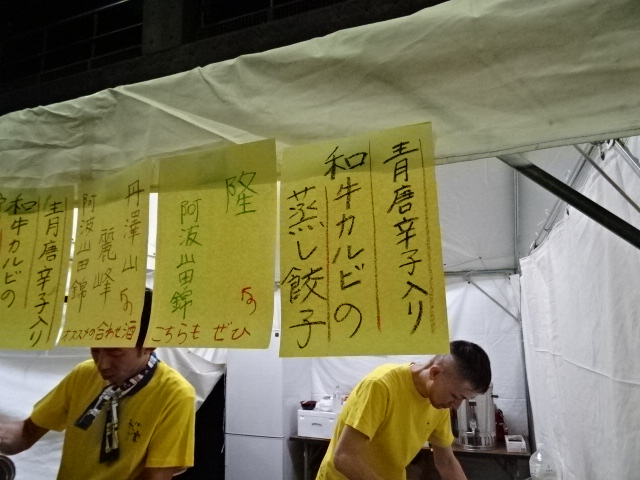 青唐辛子入り
和牛カルビの
蒸し餃子
隆
阿波山田錦
こちらも ぜひ
丹澤山
麗峰
阿波山田錦
オススメの合わせ酒
青唐辛子入り
和牛カルビの